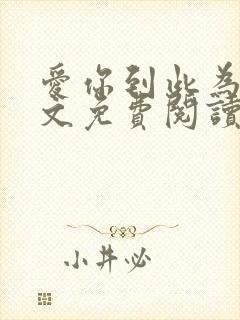 愛你到此為
文免費閱讀
小井必